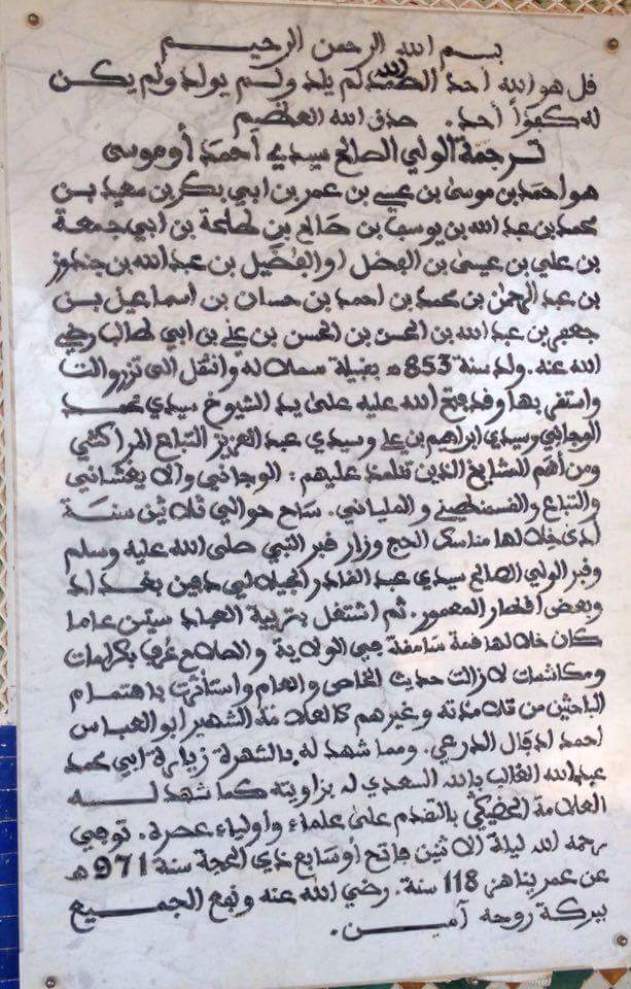 بسم الله الرحمن الرحيم
قل هو الله أحد الله الصمد لم يلد ولم يولد ولم يكن
له كفؤاً أحد. صدق الله العظيم
ترجمة الولي الصالح سيدي أحمد أوموسى
هو احمد بن موسى بن عيسى بن عمر بن ابي بكر بن سعيد بن
محمد بن عبد الله بن يوسف بن صالح بن طلحة بن ابي جمعة
بن علي بن عيسى بن الفضل أو الفضيل بن عبد الله بن جندوز
بن عبد الرحمن بن محمد بن احمد بن حسان بن اسماعيل بن
جعفر بن عبد الله بن الحسن بن الحسن بن علي بن ابي طالب رضي
الله عنه. ولد سنة 853 ه بقبيلة سملالة وانتقل الى تزروالت
واستقر بها وقد فتح الله عليه على يد الشيوخ سيدي محمد
الوجاني وسيدي ابراهيم بن علي وسيدي عبد العزيز التباع المراكشي
ومن أهم المشايخ الذين تتلمذ عليهم: الوجاني والايغشاني
والتباع والقسنطيني والملياني. ساح حوالي ثلاثين سنة
أدى خلالها مناسك الحج وزار قبر النبي صلى الله عليه وسلم
وقبر الولي الصالح سيدي عبد القادر الجيلالي دفين بغداد
وبعض اقطار المعمور. ثم اشتغل بتربية العباد ستين عاما
كان خلالها قمة سامقة في الولاية والصلاح عرف بكرامات
ومكاشفات لازالت حديث الخاص والعام واستأثرت باهتمام
الباحثين من تلامذته وغيرهم كالعلامة الشهير ابو العباس
احمد ادفال الدرعي. ومما شهد له بالشهرة زيارة ابي محمد
عبد الله الغالب بالله السعدي له بزاويته كما شهد له
العلامة الحضيكي بالتقدم على علماء وأولياء عصره. توفي
رحمه الله ليلة الاثنين فاتح أو سابع ذي الحجة سنة 971 ه
عن عمر يناهز 118 سنة. رضي الله عنه ونفع الجميع
ببركة روحه آمين.